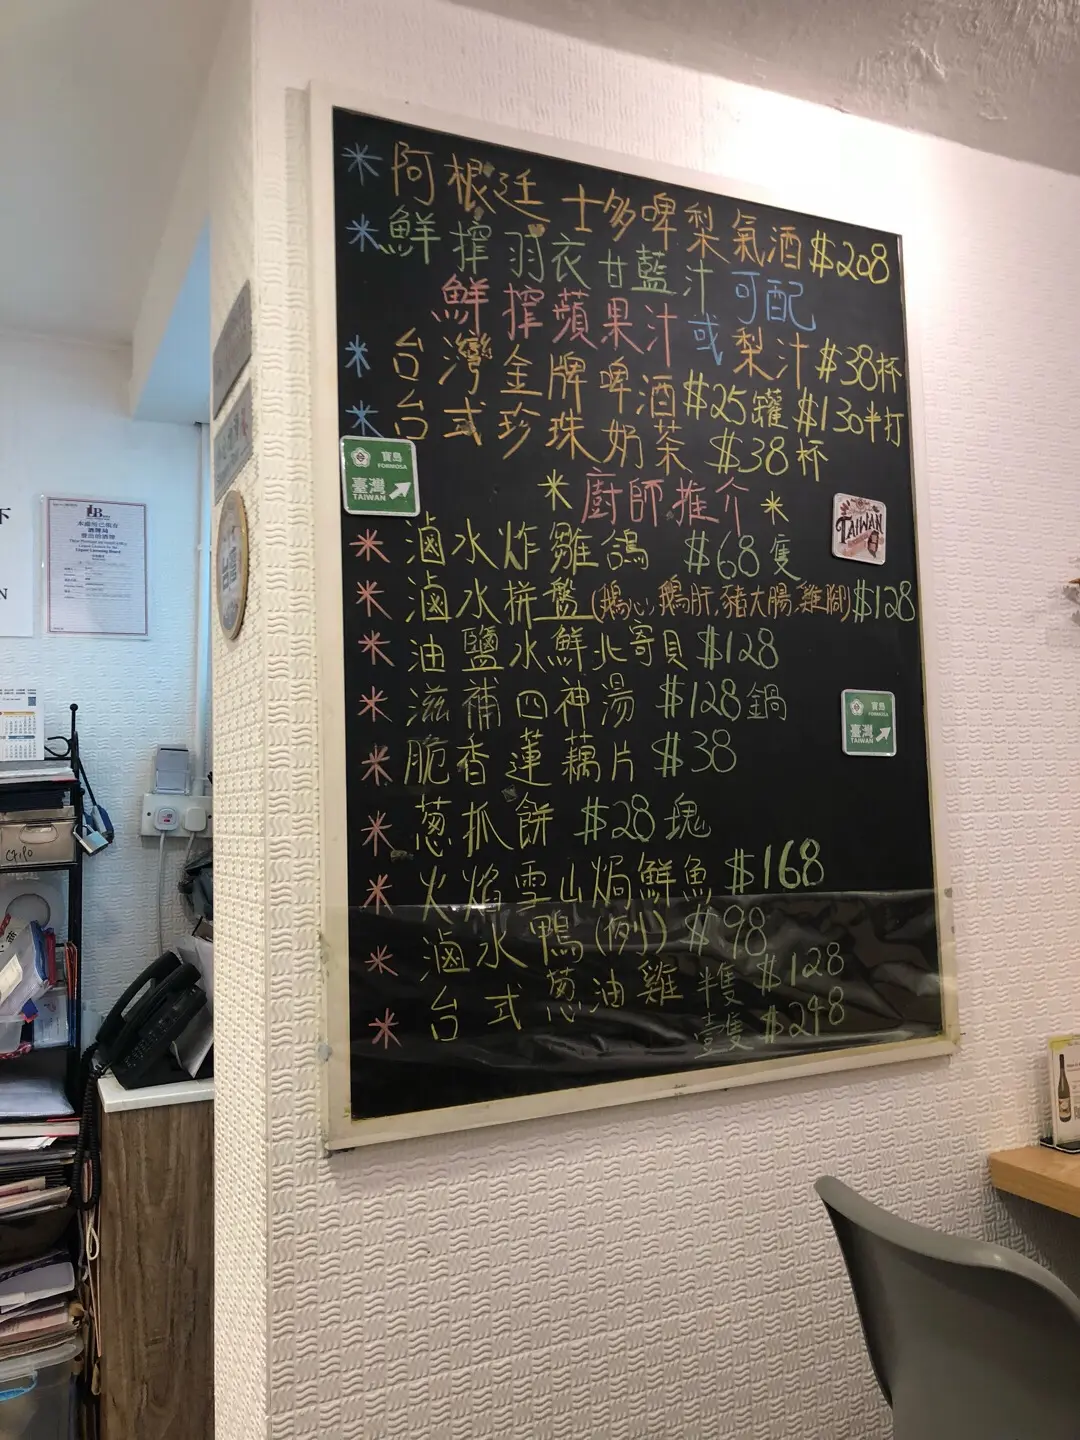 ＊阿根廷 士多啤梨氣酒$208
＊鮮搾羽衣甘藍汁 可配
鮮搾蘋果汁或梨汁$38杯
＊台灣金牌啤酒$25罐 $130半打
＊台式珍珠奶茶 $38杯
＊廚師推介＊
＊滷水炸雛鴿 $68隻
＊滷水拼盤(鵝心,鵝肝,豬大腸,雞腳)$128
＊油鹽水鮮北寄貝 $128
＊滋補四神湯 $128鍋
＊脆香蓮藕片 $38
＊葱抓餅 $28塊
＊火焰雪山焗鮮魚 $168
＊滷水鴨(例) $98
＊台式葱油雞 半隻 $128
壹隻 $248
寶島
FORMOSA
臺灣
TAIWAN
TAIWAN
寶島
FORMOSA
臺灣
TAIWAN